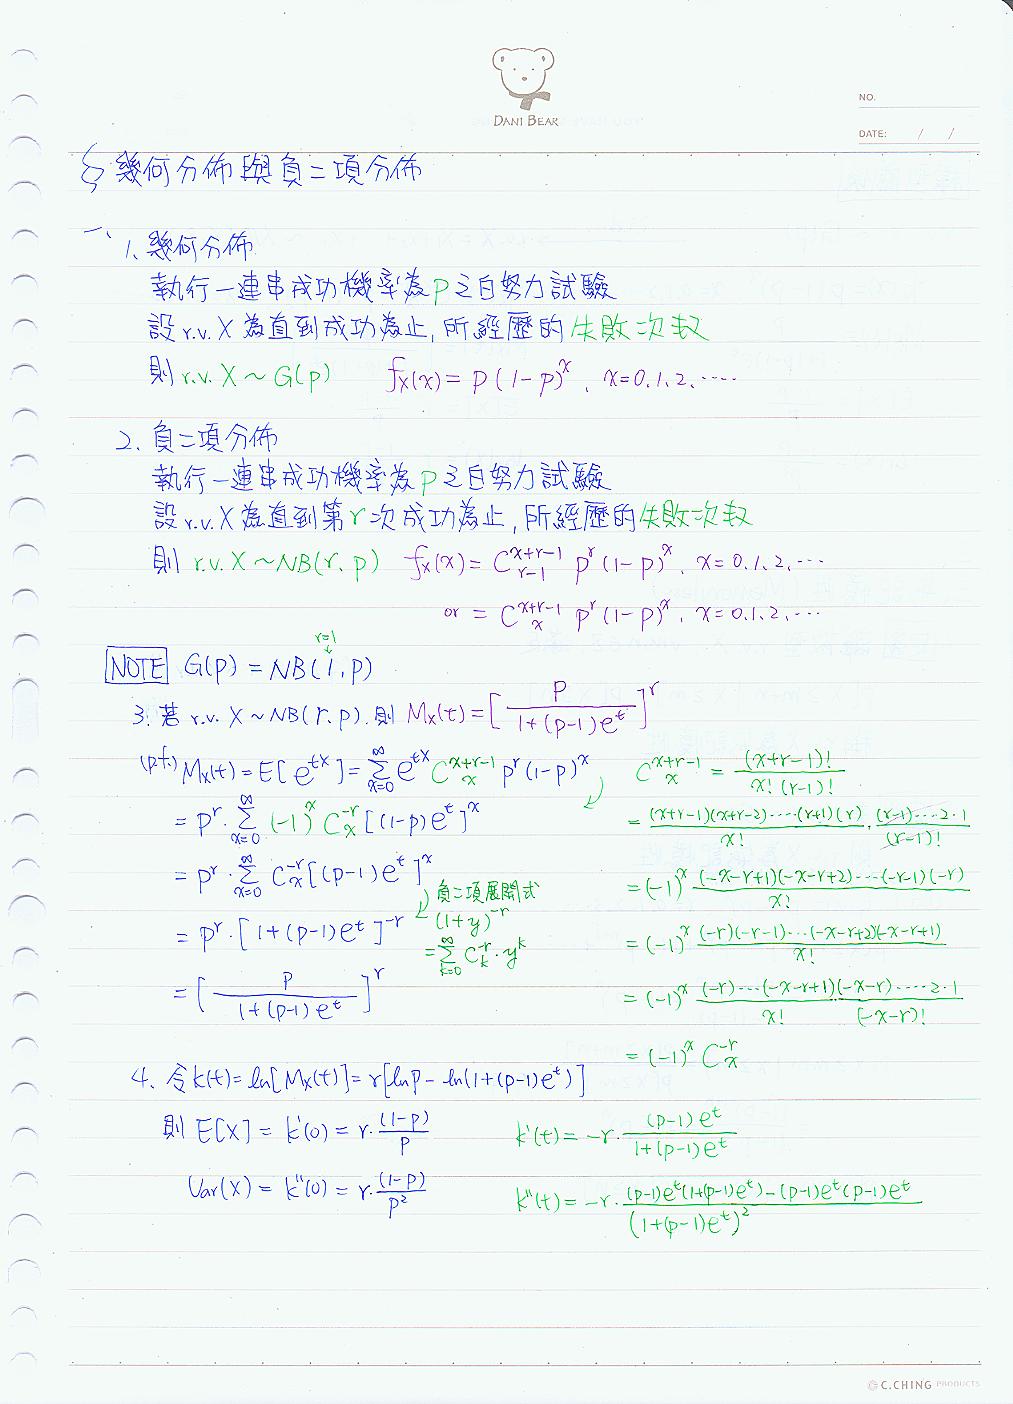 DANI BEAR
NO.
DATE: / /
§ 幾何分佈與負二項分佈
一、
1. 幾何分佈
執行一連串成功機率為p之白努力試驗
設r.v. X為直到成功為止,所經歷的失敗次數
則 r.v. X ~ G(p) f_X(x) = p(1-p)^x, x=0.1.2.....
2. 負二項分佈
執行一連串成功機率為p之白努力試驗
設r.v. X為直到第r次成功為止,所經歷的失敗次數
則 r.v. X ~ NB(r, p) f_X(x) = C^{x+r-1}_{r-1} p^r (1-p)^x, x=0.1.2....
or = C^{x+r-1}_x p^r (1-p)^x, x=0.1.2....
r=1
↓
NOTE G(p) = NB(1, p)
3. 若 r.v. X ~ NB(r, p). 則 M_X(t) = [p/(1+(p-1)e^t)]^r
(pf:) M_X(t) = E[e^{tX}] = Σ_{x=0}^∞ e^{tX} C^{x+r-1}_x p^r (1-p)^x
= p^r · Σ_{x=0}^∞ (-1)^x C^{-r}_x [(1-p)e^t]^x
= p^r · Σ_{x=0}^∞ C^{-r}_x [(p-1)e^t]^x
= p^r · [1+(p-1)e^t]^{-r}
= [p/(1+(p-1)e^t)]^r
負二項展開式
(1+y)^{-r}
= Σ_{k=0}^∞ C^{-r}_k · y^k
C^{x+r-1}_x = (x+r-1)!/(x!(r-1)!)
= (x+r-1)(x+r-2)·····(r+1)(r)/x! · (r-1)····2·1/(r-1)!
= (-1)^x (-x-r+1)(-x-r+2)···(-r-1)(-r)/x!
= (-1)^x (-r)(-r-1)···(-x-r+2)(-x-r+1)/x!
= (-1)^x (-r)···(-x-r+1)(-x-r)·····2·1/(x!(-x-r)!)
= (-1)^x C^{-r}_x
4. 令 k(t) = ln[M_X(t)] = r[lnp - ln(1+(p-1)e^t)]
則 E[X] = k'(0) = r·(1-p)/p k'(t) = -r·(p-1)e^t/(1+(p-1)e^t)
Var(X) = k''(0) = r·(1-p)/p^2 k''(t) = -r·((p-1)e^t(1+(p-1)e^t)-(p-1)e^t(p-1)e^t)/(1+(p-1)e^t)^2
C.CHING PRODUCTS